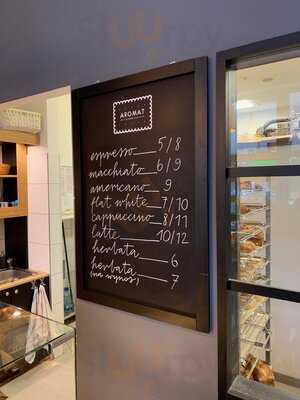 AROMAT
espresso 5/8
macchiato 6/9
americano 9
flat white 7/10
cappuccino 8/11
latte 10/12
herbata 6
herbata 7
(na wynos)